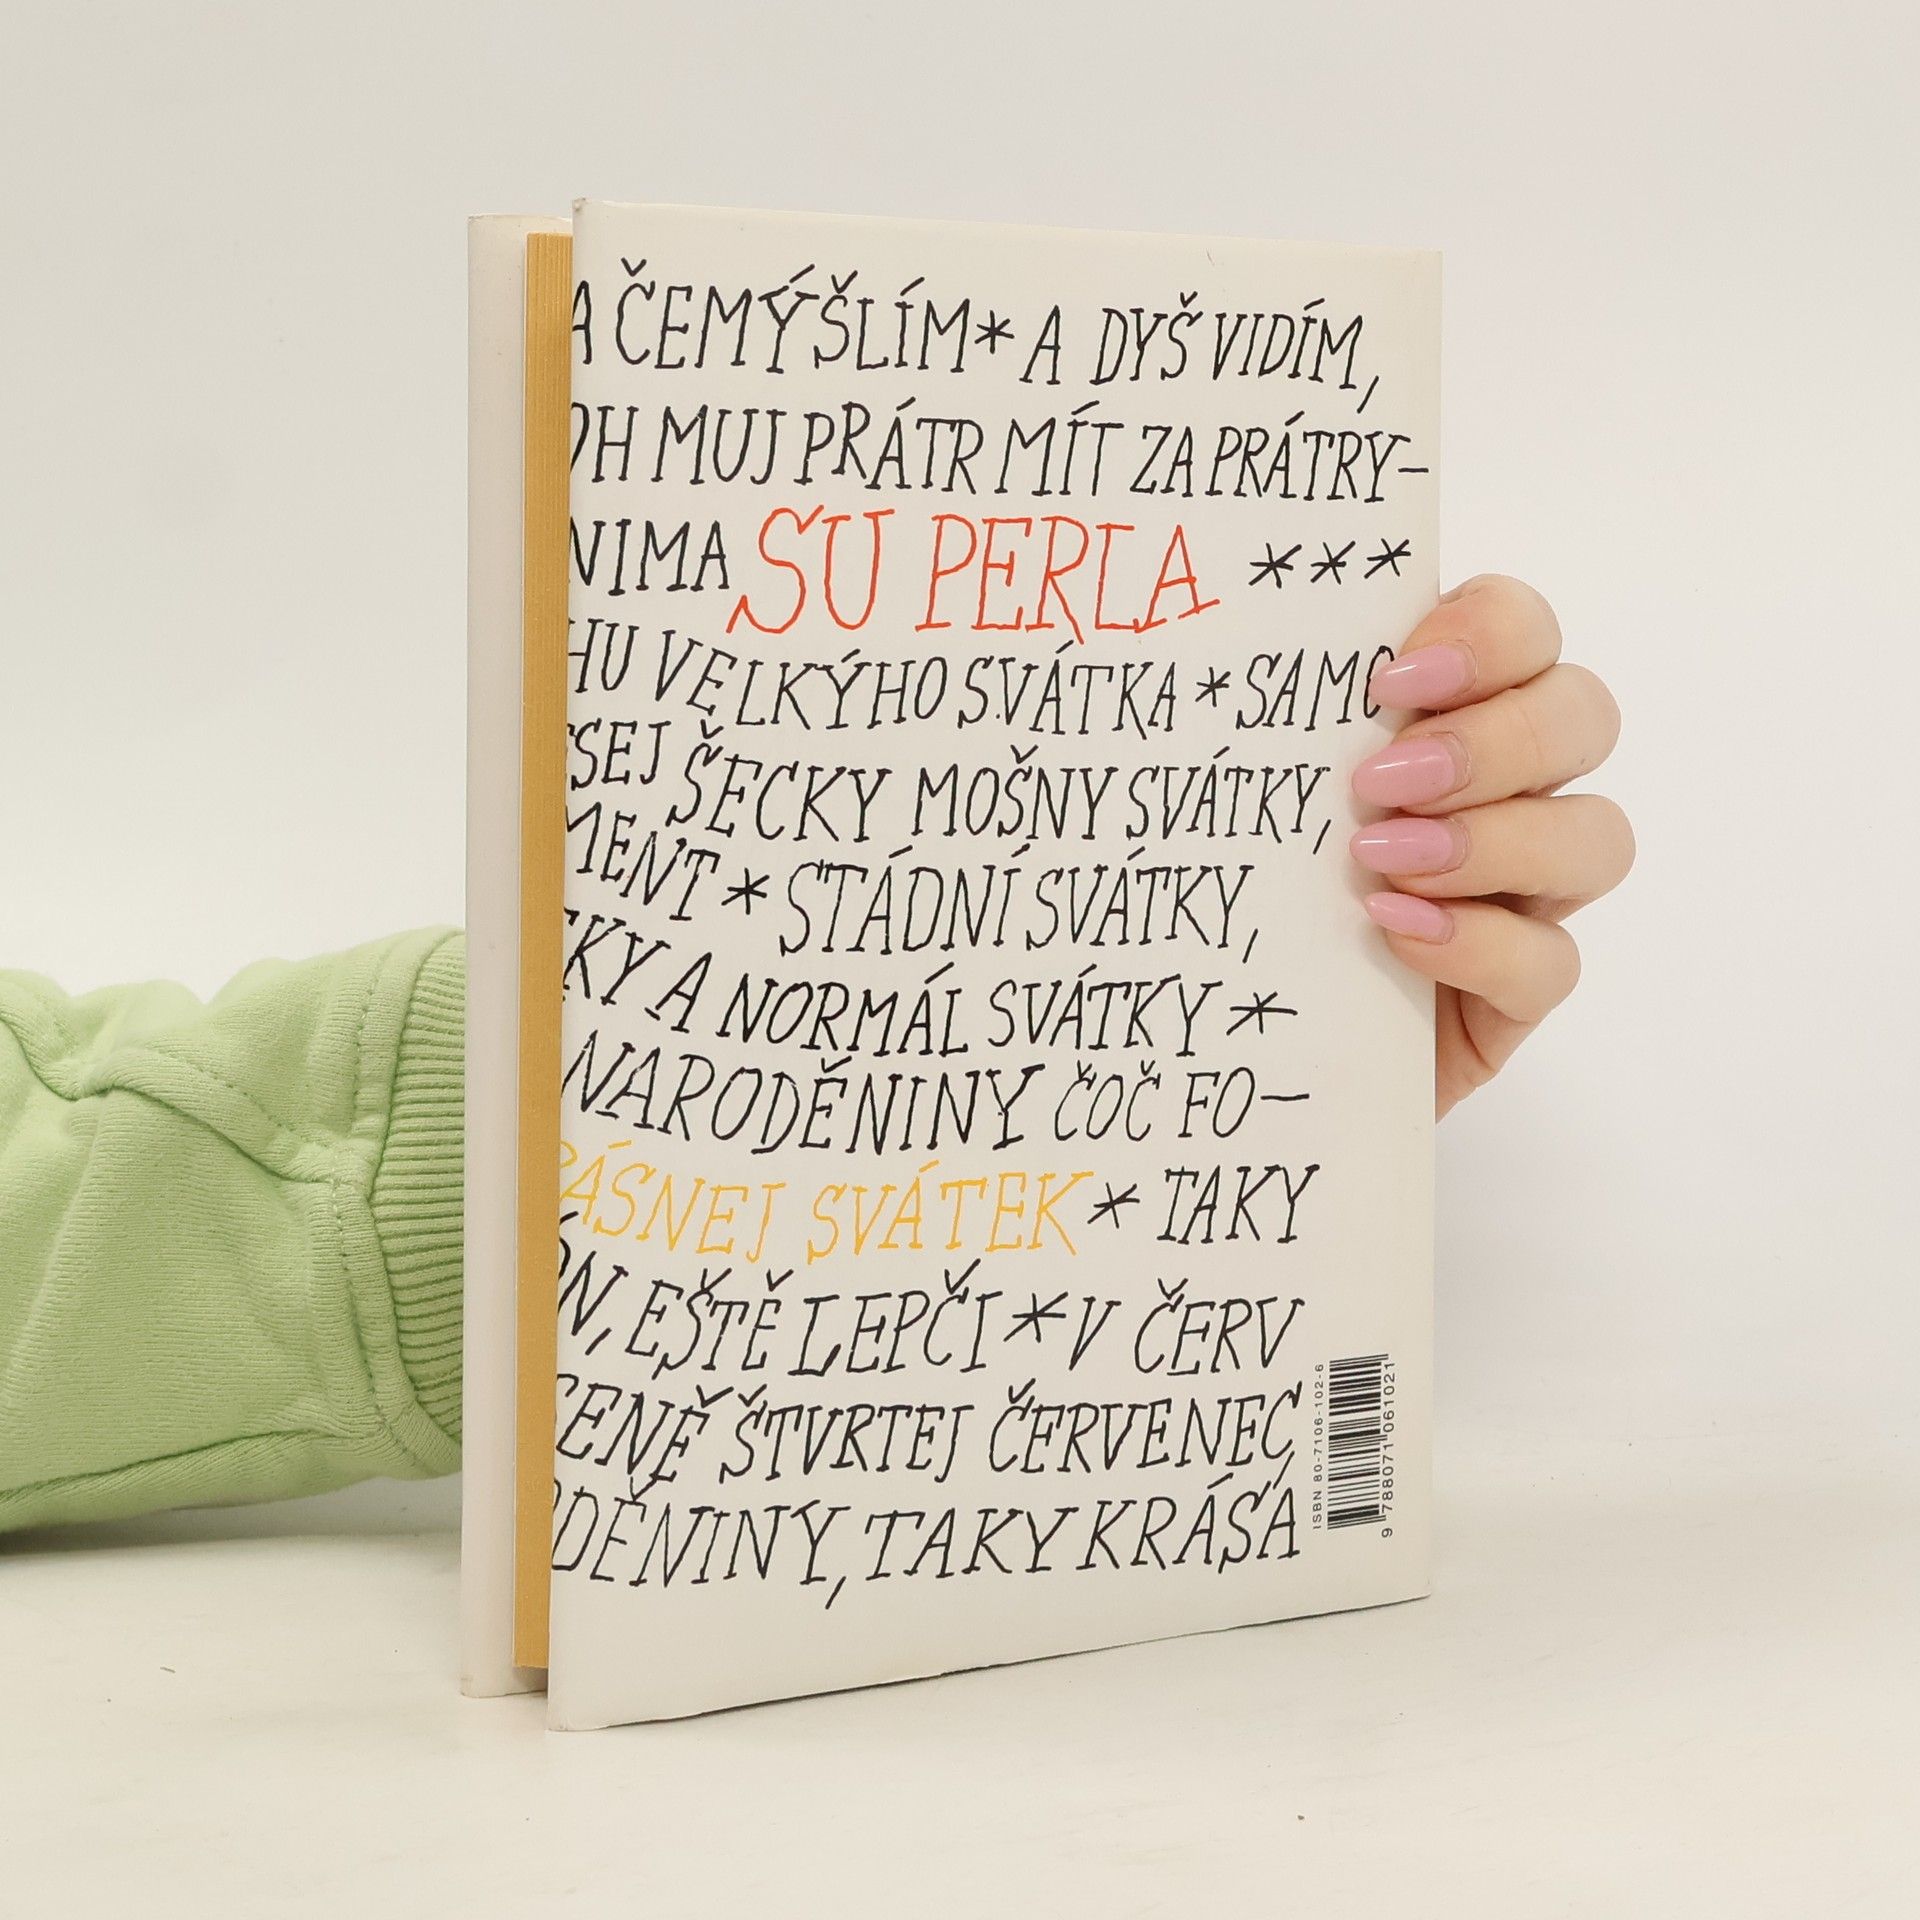 A ČEMÝŠLÍM * A DYŠ VIDÍM,
OH MUJ PRÁTR MÍT ZA PRÁTRY–
NIMA SU PERLA ***
HU VELKÝHO SVÁTKA * SAMO
SEJ ŠECKY MOŠNY SVÁTKY,
MENT * STÁDNÍ SVÁTKY,
KY A NORMÁL SVÁTKY *
NARODĚNINY ČOČ FO–
ÁSNEJ SVÁTEK * TAKY
N, EŠTĚ LEPČI * V ČERV
ENĚ ŠTVRTEJ ČERVENEC,
DĚNINY, TAKY KRÁSÁ
ISBN 80-7106-102-6
9 788071 061021